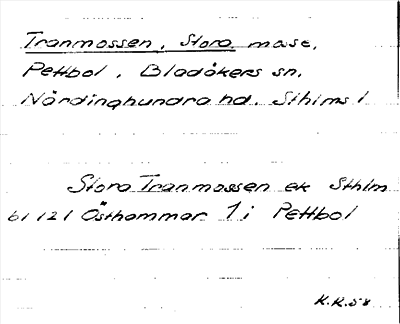 Tranmossen, Stora, mosse,
Pettbol, Bladåkers sn,
Närdinghundra hd. Sthlms l
Stora Tranmossen ek Sthlm
bl 121 Östhammar 1 i Pettbol
K.R. 58